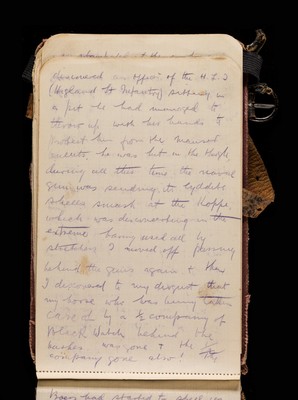 discovered an officer of the H.L.I
(Highland Lt Infantry) sitting in
a pit he had managed to
throw up with his hands to
protect him from the
bullets, he was hit in the thigh,
during all this time, the naval
guns was sending its lyddite
shells smash at the Koppe,
which was disconcerting in the
extreme having used all my
stretchers I moved off
behind the guns again & then
I discovered to my disgust that
my horse who was being taken
care of by a ½ company of
Black Watch behind the
was gone & the ½
company gone also! The
had started to